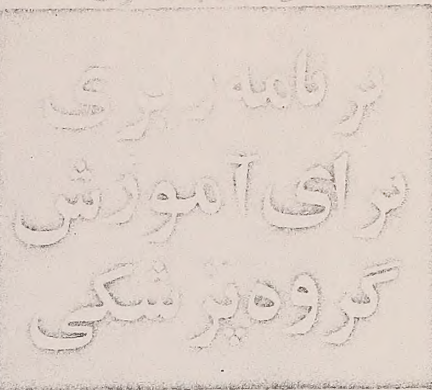 برنامه ریزی
برای آموزش
گروه پزشکی